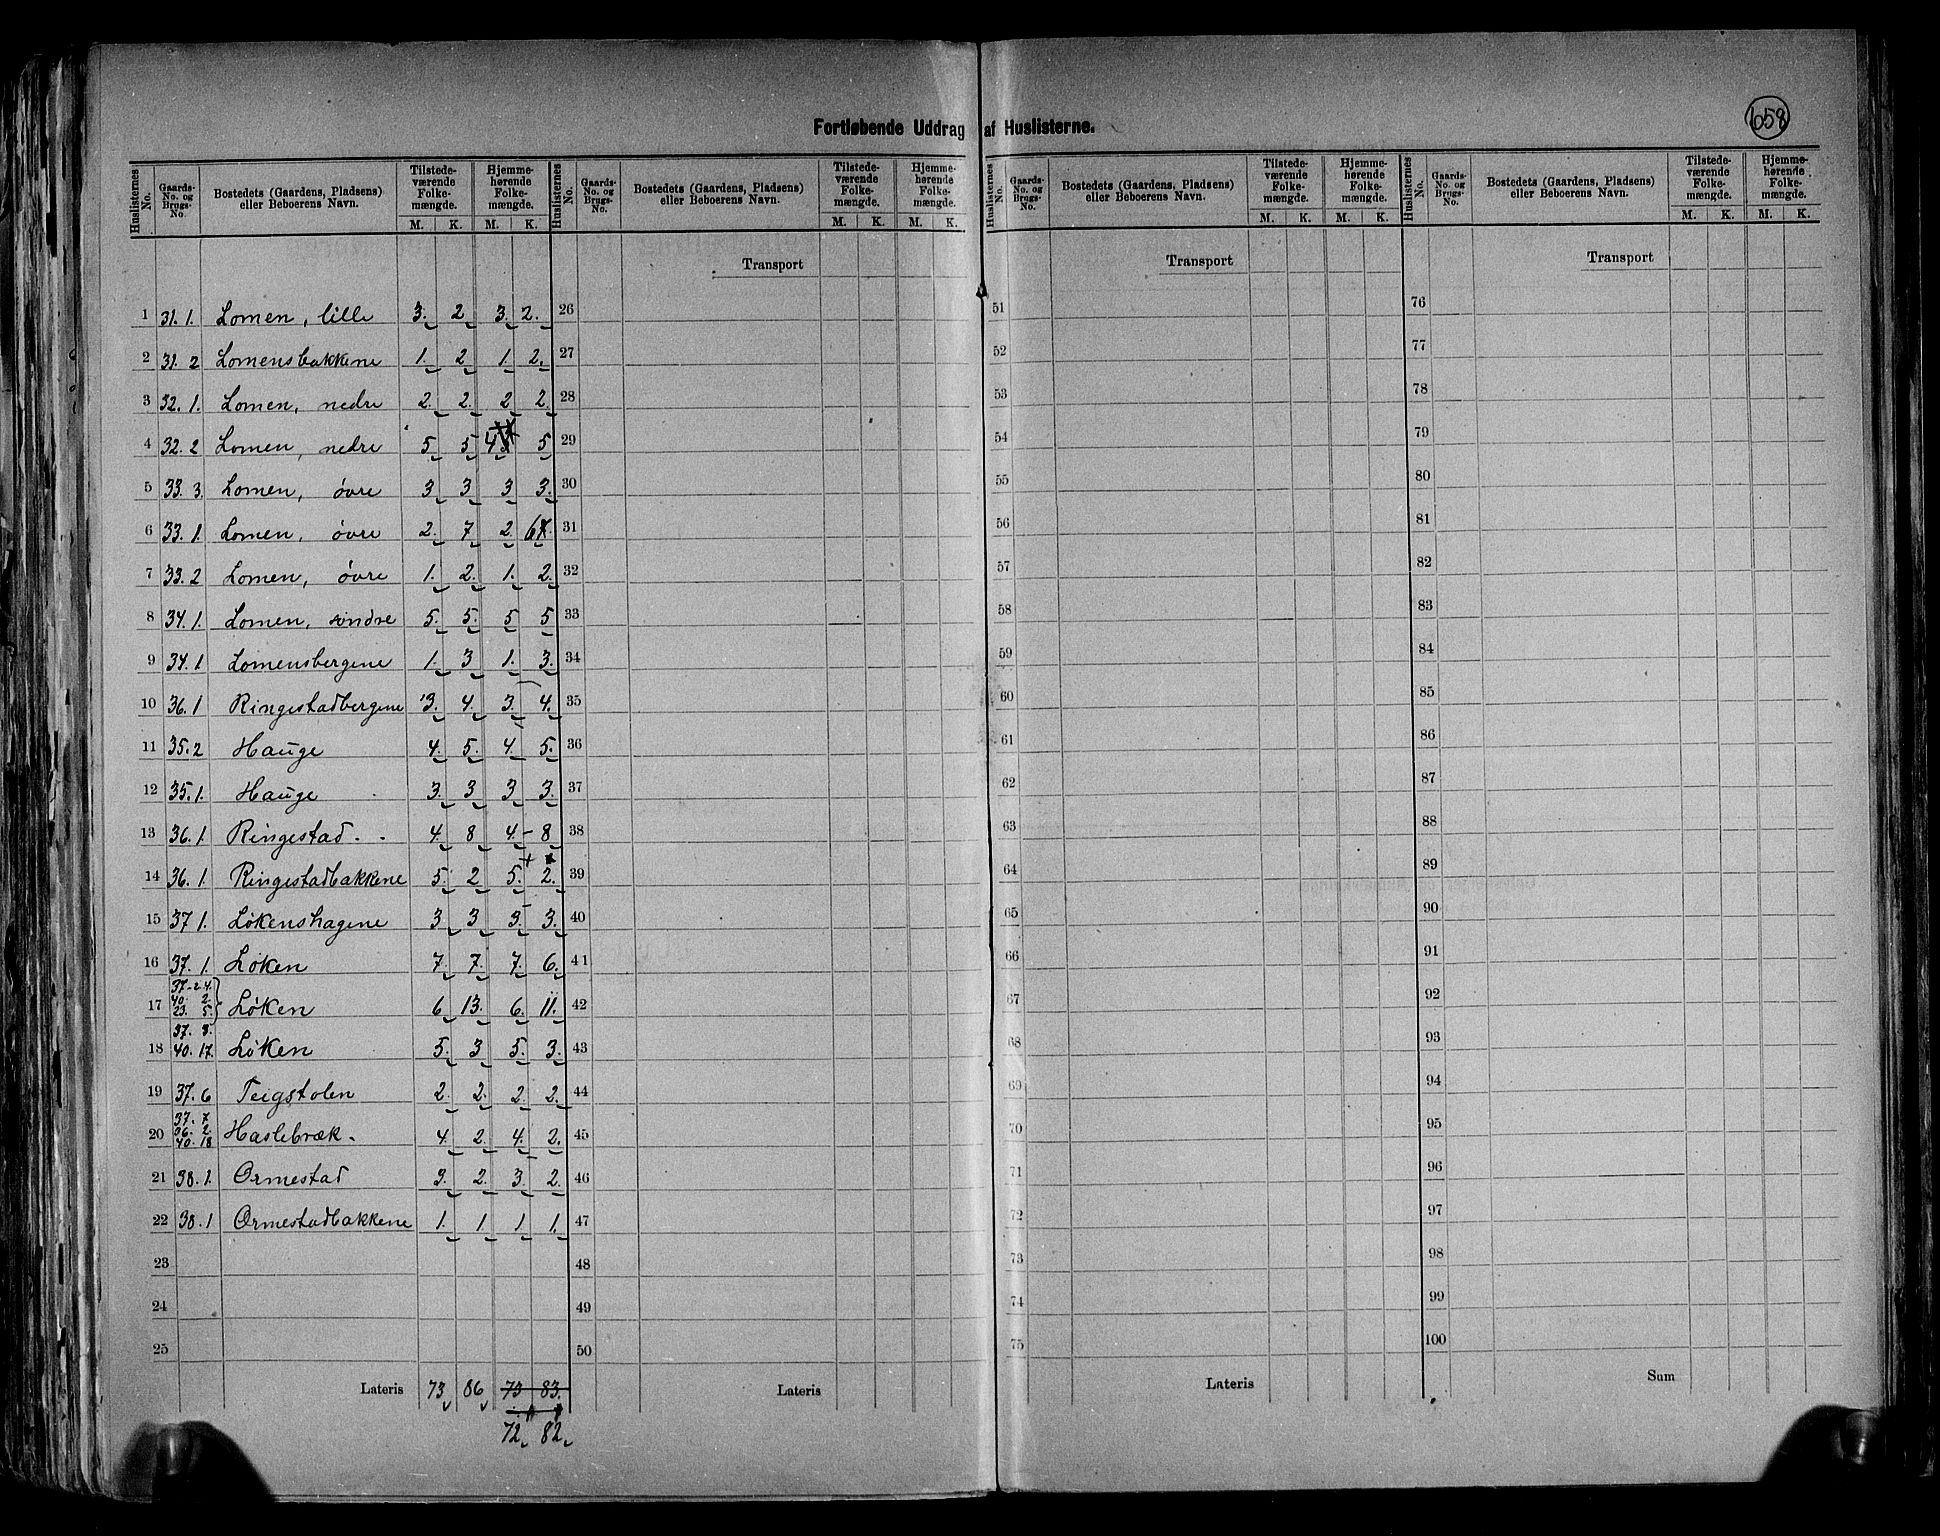 658
Fortløbende Uddrag af Huslisternes.
Huslisternes No. | Gaards-No. og Brugs-No. | Bostedets (Gaardens, Pladsens) eller Beboerens Navn. | Tilstede-værende Folke-mængde. M. K. | Hjemme-hørende Folke-mængde. M. K.
Huslisternes No. | Gaards-No. og Brugs-No. | Bostedets (Gaardens, Pladsens) eller Beboerens Navn. | Tilstede-værende Folke-mængde. M. K. | Hjemme-hørende Folke-mængde. M. K.
Huslisternes No. | Gaards-No. og Brugs-No. | Bostedets (Gaardens, Pladsens) eller Beboerens Navn. | Tilstede-værende Folke-mængde. M. K. | Hjemme-hørende Folke-mængde. M. K.
Huslisternes No. | Gaards-No. og Brugs-No. | Bostedets (Gaardens, Pladsens) eller Beboerens Navn. | Tilstede-værende Folke-mængde. M. K. | Hjemme-hørende Folke-mængde. M. K.
Transport Transport Transport
1 31. 1. Lomen, lille 3. 2 3. 2. 26 51 76
2 31. 2 Lomensbakkene 1. 2 1. 2. 27 52 77
3 32. 1. Lomen, nedre 2. 2. 2 2. 28 53 78
4 32. 2 Lomen, nedre 5 5 4 5 29 54 79
5 33. 3. Lomen, övre 3 3 3 3. 30 55 80
6 33. 1. Lomen, övre 2. 7 2. 6 7. 31 56 81
7 33. 2 Lomen, övre 1. 2. 1. 2. 32 57 82
8 34. 1. Lomen, söndre 5. 5. 5 5 33 58 83
9 34. 1 Lomensbergene 1. 3 1. 3. 34 59 84
10 36. 1 Ringestadbergene 3. 4. 3. 4. 35 60 85
11 35. 2 Hauge 4. 5. 4. 5. 36 61 86
12 35. 1. Hauge 3. 3 3 3. 37 62 87
13 36. 1 Ringestad. 4. 8 4. 8 38 63 88
14 36. 1. Ringestadbakkene 5. 2 5. 2. 39 64 89
15 37 1. Lökenshagene 3 3 3 3. 40 65 90
16 37. 1. Löken 7. 7. 7. 6. 41 66 91
37-2 4.
40. 2.
17 23. 5. Löken 6 13. 6. 11. 42 67 92
37. 8.
18 40. 17. Löken 5. 3 5. 3. 43 68 93
19 37. 6 Teigstolen 2. 2. 2. 2. 44 69 94
37. 7.
36. 2.
20 40. 18 Haslebræk. 4. 2. 4. 2. 45 70 95
21 38. 1. Ormestad 3. 2. 3. 2. 46 71 96
22 38. 1 Ormestadbakkene 1. 1. 1 1. 47 72 97
23 48 73 98
24 49 74 99
25 50 75 100
Lateris 73 86 73 83. Lateris Lateris Sum
72. 82.